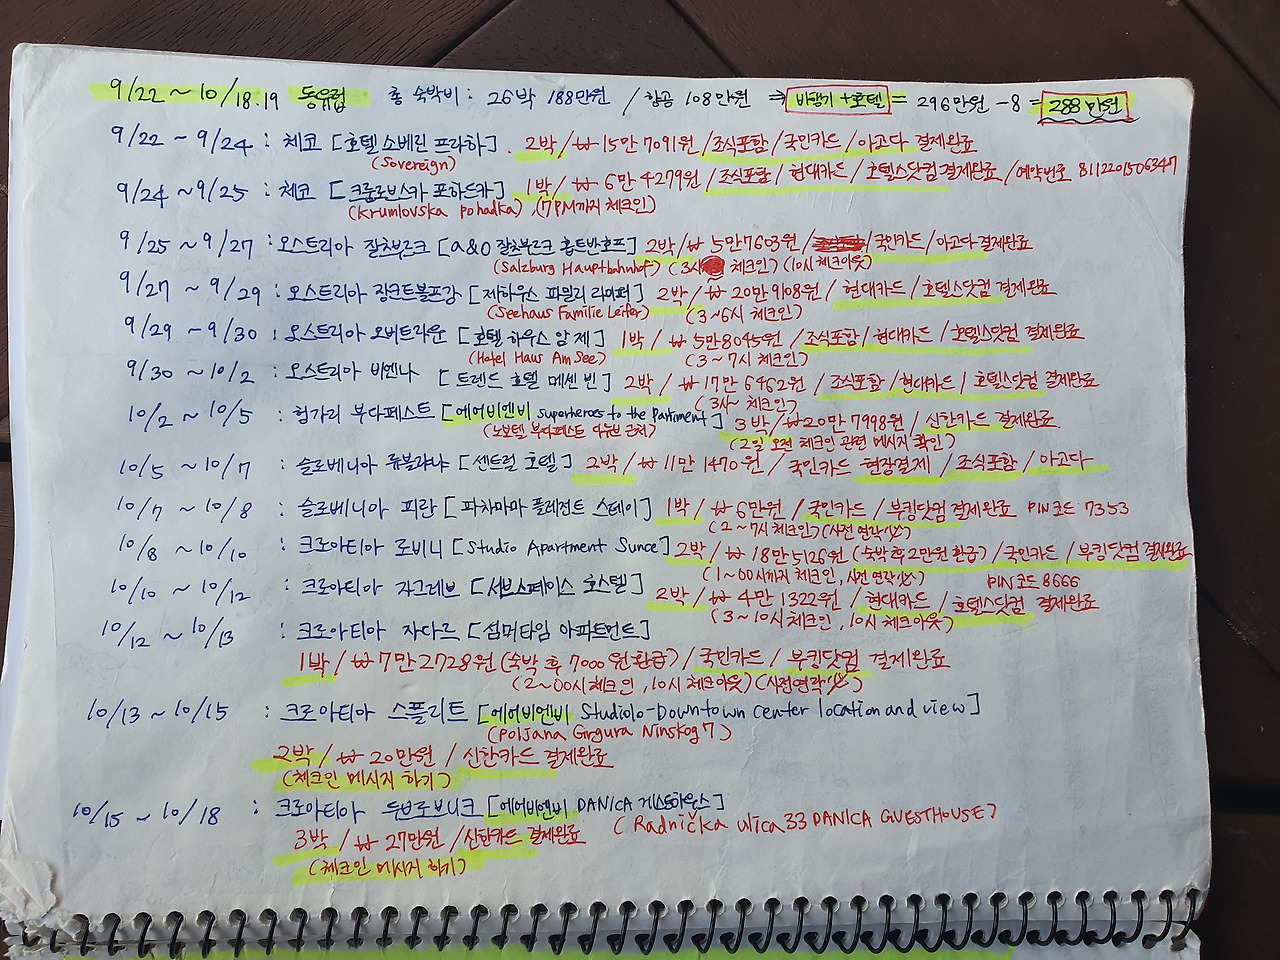 9/22 ~ 10/18.19 동유럽 총 숙박비 : 26박 188만원 / 항공 108만원 ⇒ 비행기+호텔 = 296만원 -8 = 288만원
9/22 ~ 9/24 : 체코 [호텔 소베린 프라하] . 2박 / ₩ 15만 7091원 / 조식포함 / 국민카드 / 아고다 결제완료
(Sovereign)
9/24 ~ 9/25 : 체코 [크룸로브스카 포하드카] 1박 / ₩ 6만 4279원 / 조식포함 / 현대카드 / 호텔스닷컴 결제완료 / 예약번호 8112201506347
(Krumlovska pohadka) , (7PM까지 체크인)
9/25 ~ 9/27 : 오스트리아 잘츠부르크 [a&o 잘츠부르크 홉트반호프] 2박 / ₩ 5만 7603원 / 국민카드 / 아고다 결제완료
(Salzburg Hauptbahnhof) (3시 체크인) (10시 체크아웃)
9/27 ~ 9/29 : 오스트리아 장크트볼프강 [제하우스 파밀리 라이퍼] 2박 / ₩ 20만 9108원 / 현대카드 / 호텔스닷컴 결제완료
(Seehaus Familie Leifer) (3~6시 체크인)
9/29 ~ 9/30 : 오스트리아 오버트라운 [호텔 하우스 암 제] 1박 / ₩ 5만 8045원 / 조식포함 / 현대카드 / 호텔스닷컴 결제완료
(Hotel Haus Am See) (3~7시 체크인)
9/30 ~ 10/2 : 오스트리아 비엔나 [트렌드 호텔 메센 빈] 2박 / ₩ 17만 6462원 / 조식포함 / 현대카드 / 호텔스닷컴 결제완료
(3시~ 체크인)
10/2 ~ 10/5 : 헝가리 부다페스트 [에어비엔비 superheroes to the Partiment] 3박 / ₩20만 7998원 / 신한카드 결제완료
(노보텔 부다페스트 다뉴브 근처) (2일 오전 체크인 관련 메시지 확인)
10/5 ~ 10/7 : 슬로베니아 류블랴냐 [센트럴 호텔] 2박 / ₩ 11만 1470원 / 국민카드 현장결제 / 조식포함 / 아고다
10/7 ~ 10/8 : 슬로베니아 피란 [파차마마 플레전트 스테이] 1박 / ₩ 6만원 / 국민카드 / 부킹닷컴 결제완료 PIN 코드 7353
(2~7시 체크인) (사전 연락 必)
10/8 ~ 10/10 : 크로아티아 로비니 [Studio Apartment Sunce] 2박 / ₩ 18만 5126원 (숙박 후 2만원 환급) / 국민카드 / 부킹닷컴 결제완료
(1~00시까지 체크인, 사전 연락 必) PIN코드 8666
10/10 ~ 10/12 : 크로아티아 자그레브 [서브스페이스 호스텔] 2박 / ₩ 4만 1322원 / 현대카드 / 호텔스닷컴 결제완료
(3~10시 체크인, 10시 체크아웃)
10/12 ~ 10/13 : 크로아티아 자다르 [섬머타임 아파트먼트]
1박 / ₩ 7만 2728원 (숙박 후 7000원 환급) / 국민카드 / 부킹닷컴 결제완료
(2~00시 체크인, 10시 체크아웃) (사전연락 必)
10/13 ~ 10/15 : 크로아티아 스플리트 [에어비엔비 Studiolo-Downtown center location and view]
(Poljana Grgura Ninskog 7)
2박 / ₩ 20만원 / 신한카드 결제완료
(체크인 메시지 하기)
10/15 ~ 10/18 : 크로아티아 두브로브니크 [에어비엔비 DANICA 게스트하우스]
(Radnička ulica 33 DANICA GUESTHOUSE)
3박 / ₩ 27만원 / 신한카드 결제완료
(체크인 메시지 하기)